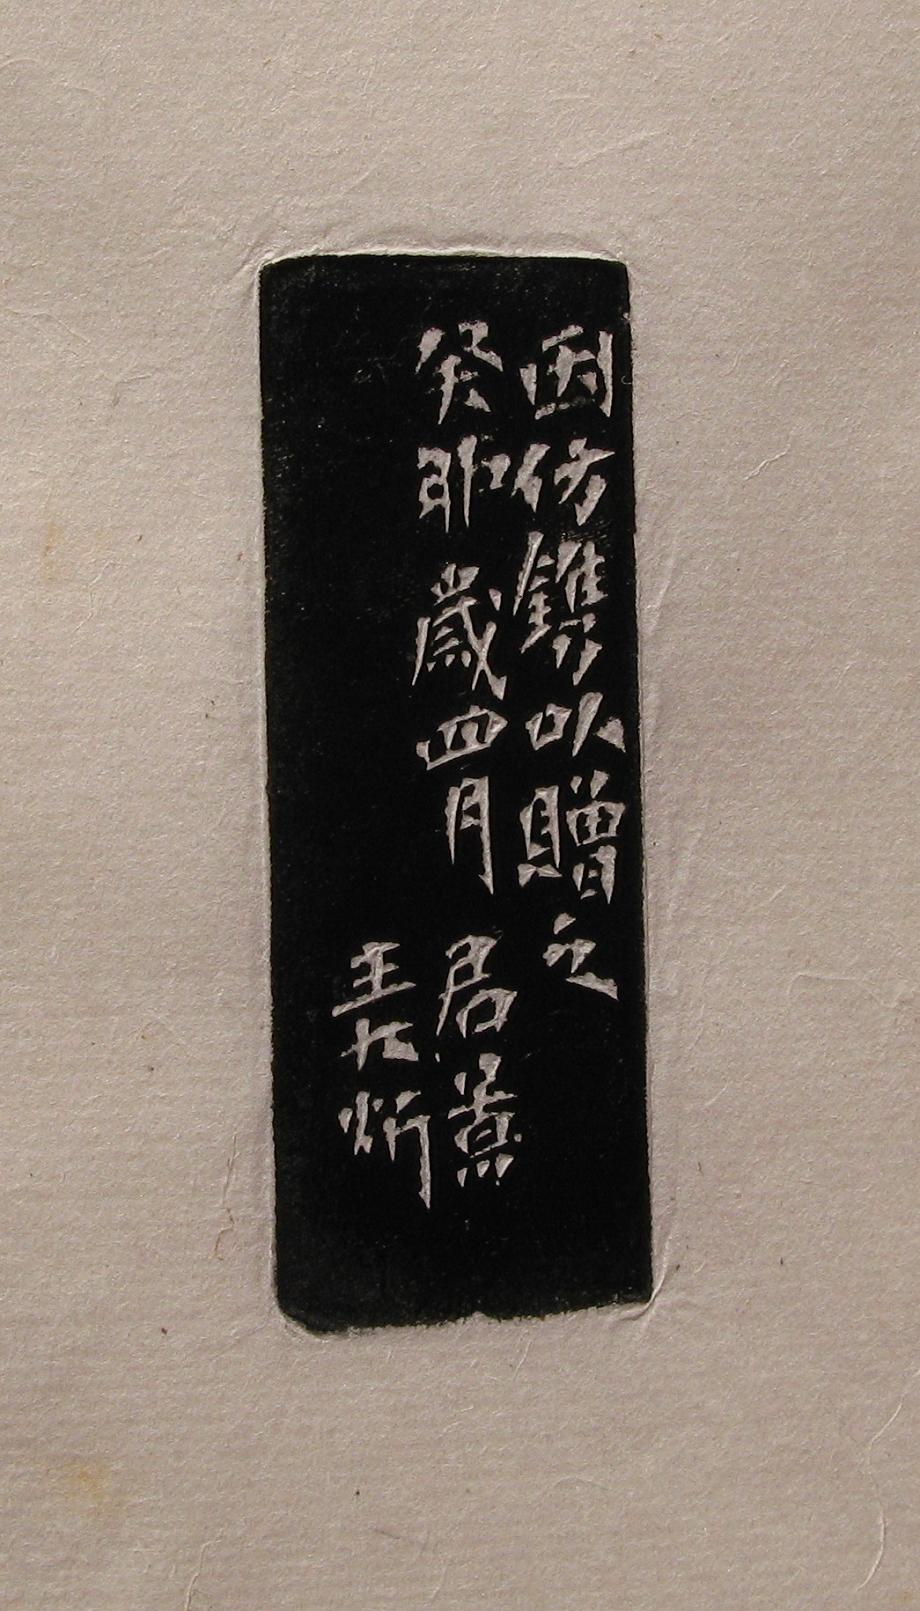 因仿鐫以贈之
癸卯歲四月 君
王大炘